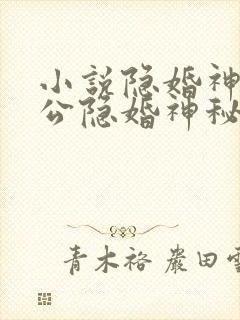 小说隐婚神
公隐婚神秘
青木裕 岩田雪